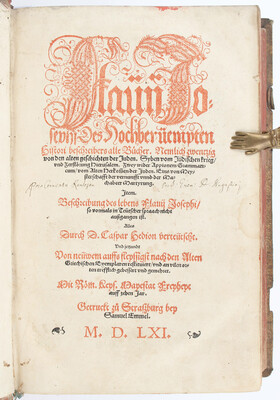 Flavij Jo-
sephi Des Hochberüempten
Histori beschreibers alle Bücher. Nemlich zwentzig
von den alten geschichten der Juden. Syben vom Jüdischen krieg/
und zerstörung Hierusalem. Zwey wider Appionem Grammati-
cum/ vom Alten Herkommen der Juden. Eins von Mey-
sterschafft der vernunfft unnd der Ma-
chabeer Martyrung.
Item.
Beschreibung des lebens Flavij Josephi/
so vormals in Teütscher spraach nicht
außgangen ist.
Alles
Durch D. Caspar Hedion verteütscht.
Und jetzundt
Von neüwem auffs fleyssigst nach den Alten
Griechischen Exemplaren restituiert/ und an vilen or-
ten trefflich gebessert und gemehret.
Mit Röm. Keys. Mayestat Freyheyt
auff zehen Jar.
Getruckt zu Straßburg bey
Samuel Emmel.
M. D. LXI.